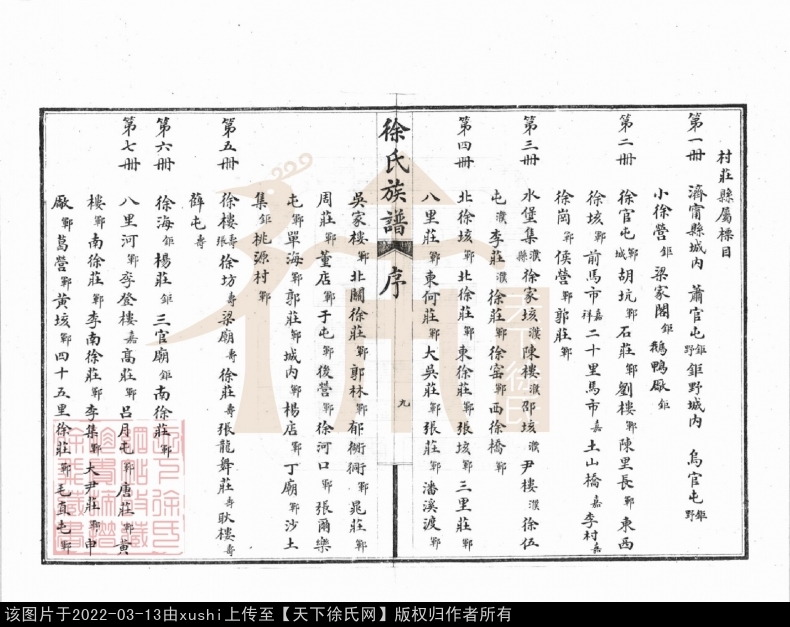 村莊縣屬標目
第一冊 濟甯縣城內 蕭官屯鉅野 鉅野城內 烏官屯鉅野
小徐營鉅 梁家閣鉅 鵝鴨廠鉅
第二冊 徐官屯鄆城 胡坑鄆 石莊鄆 劉樓鄆 陳里長鄆 東西
徐垓鄆 前馬市嘉祥 二十里馬市嘉 土山橋嘉 李村嘉
徐崗鄆 侯營鄆 郭莊鄆
第三冊 水堡集濮縣 徐家垓濮 陳樓濮 邵垓濮 尹樓濮 徐伍
屯濮 李莊濮 徐莊鄆 徐窰鄆 西徐橋鄆
第四冊 北徐垓鄆 北徐莊鄆 東徐莊鄆 張垓鄆 三里莊鄆
八里莊鄆 東何莊鄆 大吳莊鄆 張莊鄆 潘溪渡鄆
徐氏族譜 序 九
吳家樓鄆 北關徐莊鄆 郭林鄆 郁衚衕鄆 晁莊鄆
周莊鄆 董店鄆 于屯鄆 後營鄆 徐河口鄆 張爾樂
屯鄆 單海鄆 郭莊鄆 城內鄆 楊店鄆 丁廟鄆 沙土
集鉅 桃源村鄆
第五冊 徐樓壽張 徐坊壽 梁廟壽 徐莊壽 張龍舞莊壽 耿樓壽
薛屯壽
第六冊 徐海鉅 楊莊鉅 三官廟鉅 南徐莊鄆
第七冊 八里河鄆 李登樓嘉 高莊鄆 呂月屯鄆 唐莊鄆 黄
樓鄆 南徐莊鄆 李南徐莊鄆 李集鄆 大尹莊鄆 申
廠鄆 葛營鄆 黄垓鄆 四十五里徐莊鄆 毛頁屯鄆
天下徐氏
该图片于2022-03-13由xushi上传至【天下徐氏网】版权归作者所有